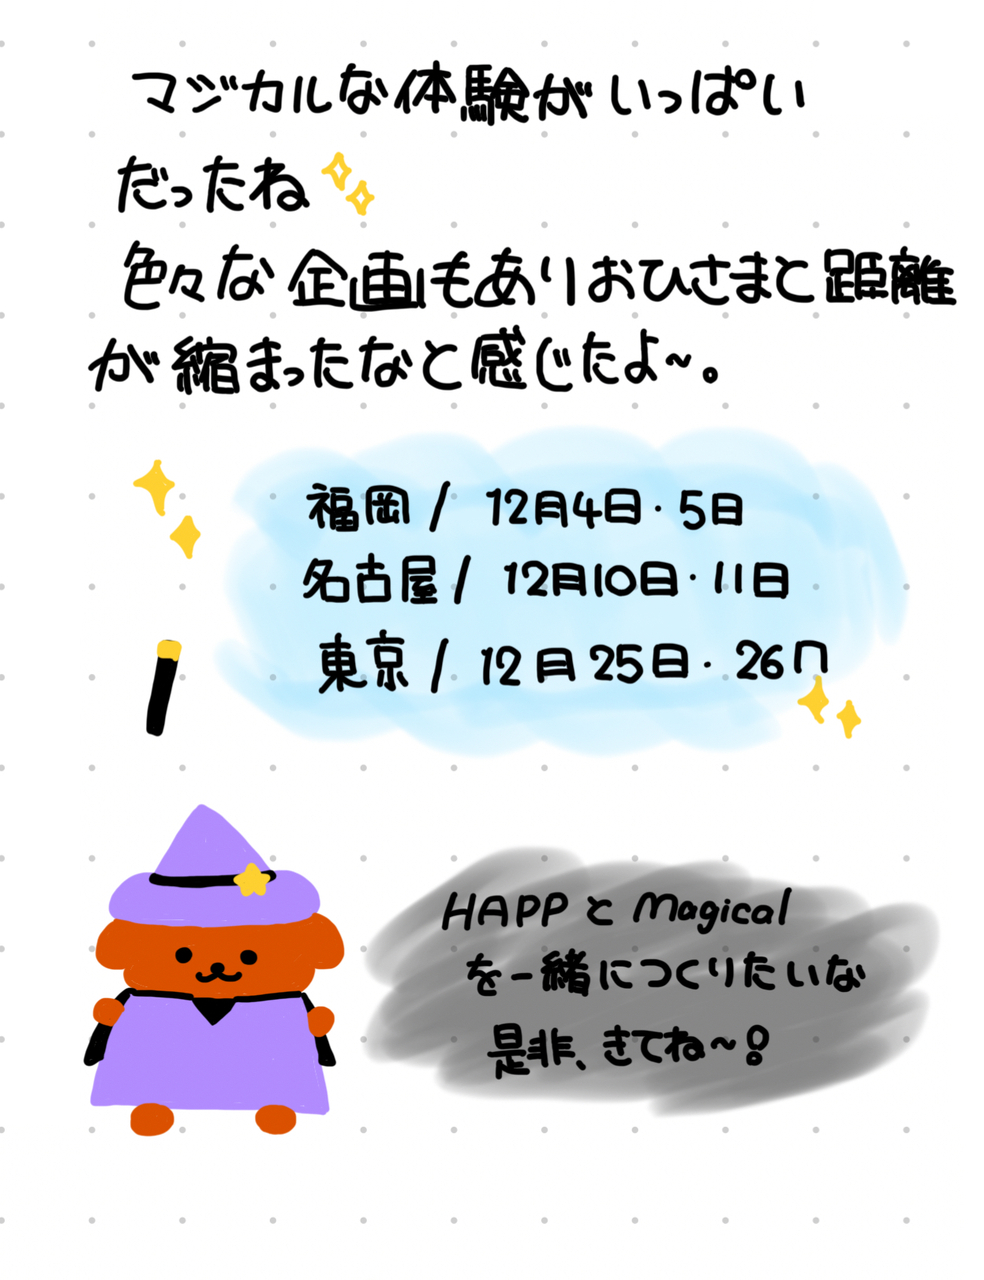 マジカルな体験がいっぱい
だったね
色々な企画もありおひさまと距離
が縮まったなと感じたよ~。
福岡/ 12月4日・5日
名古屋/ 12月10日・11日
東京/ 12月25日・26
HAPPとMagical
を一緒につくりたいな
是非、きてね~!